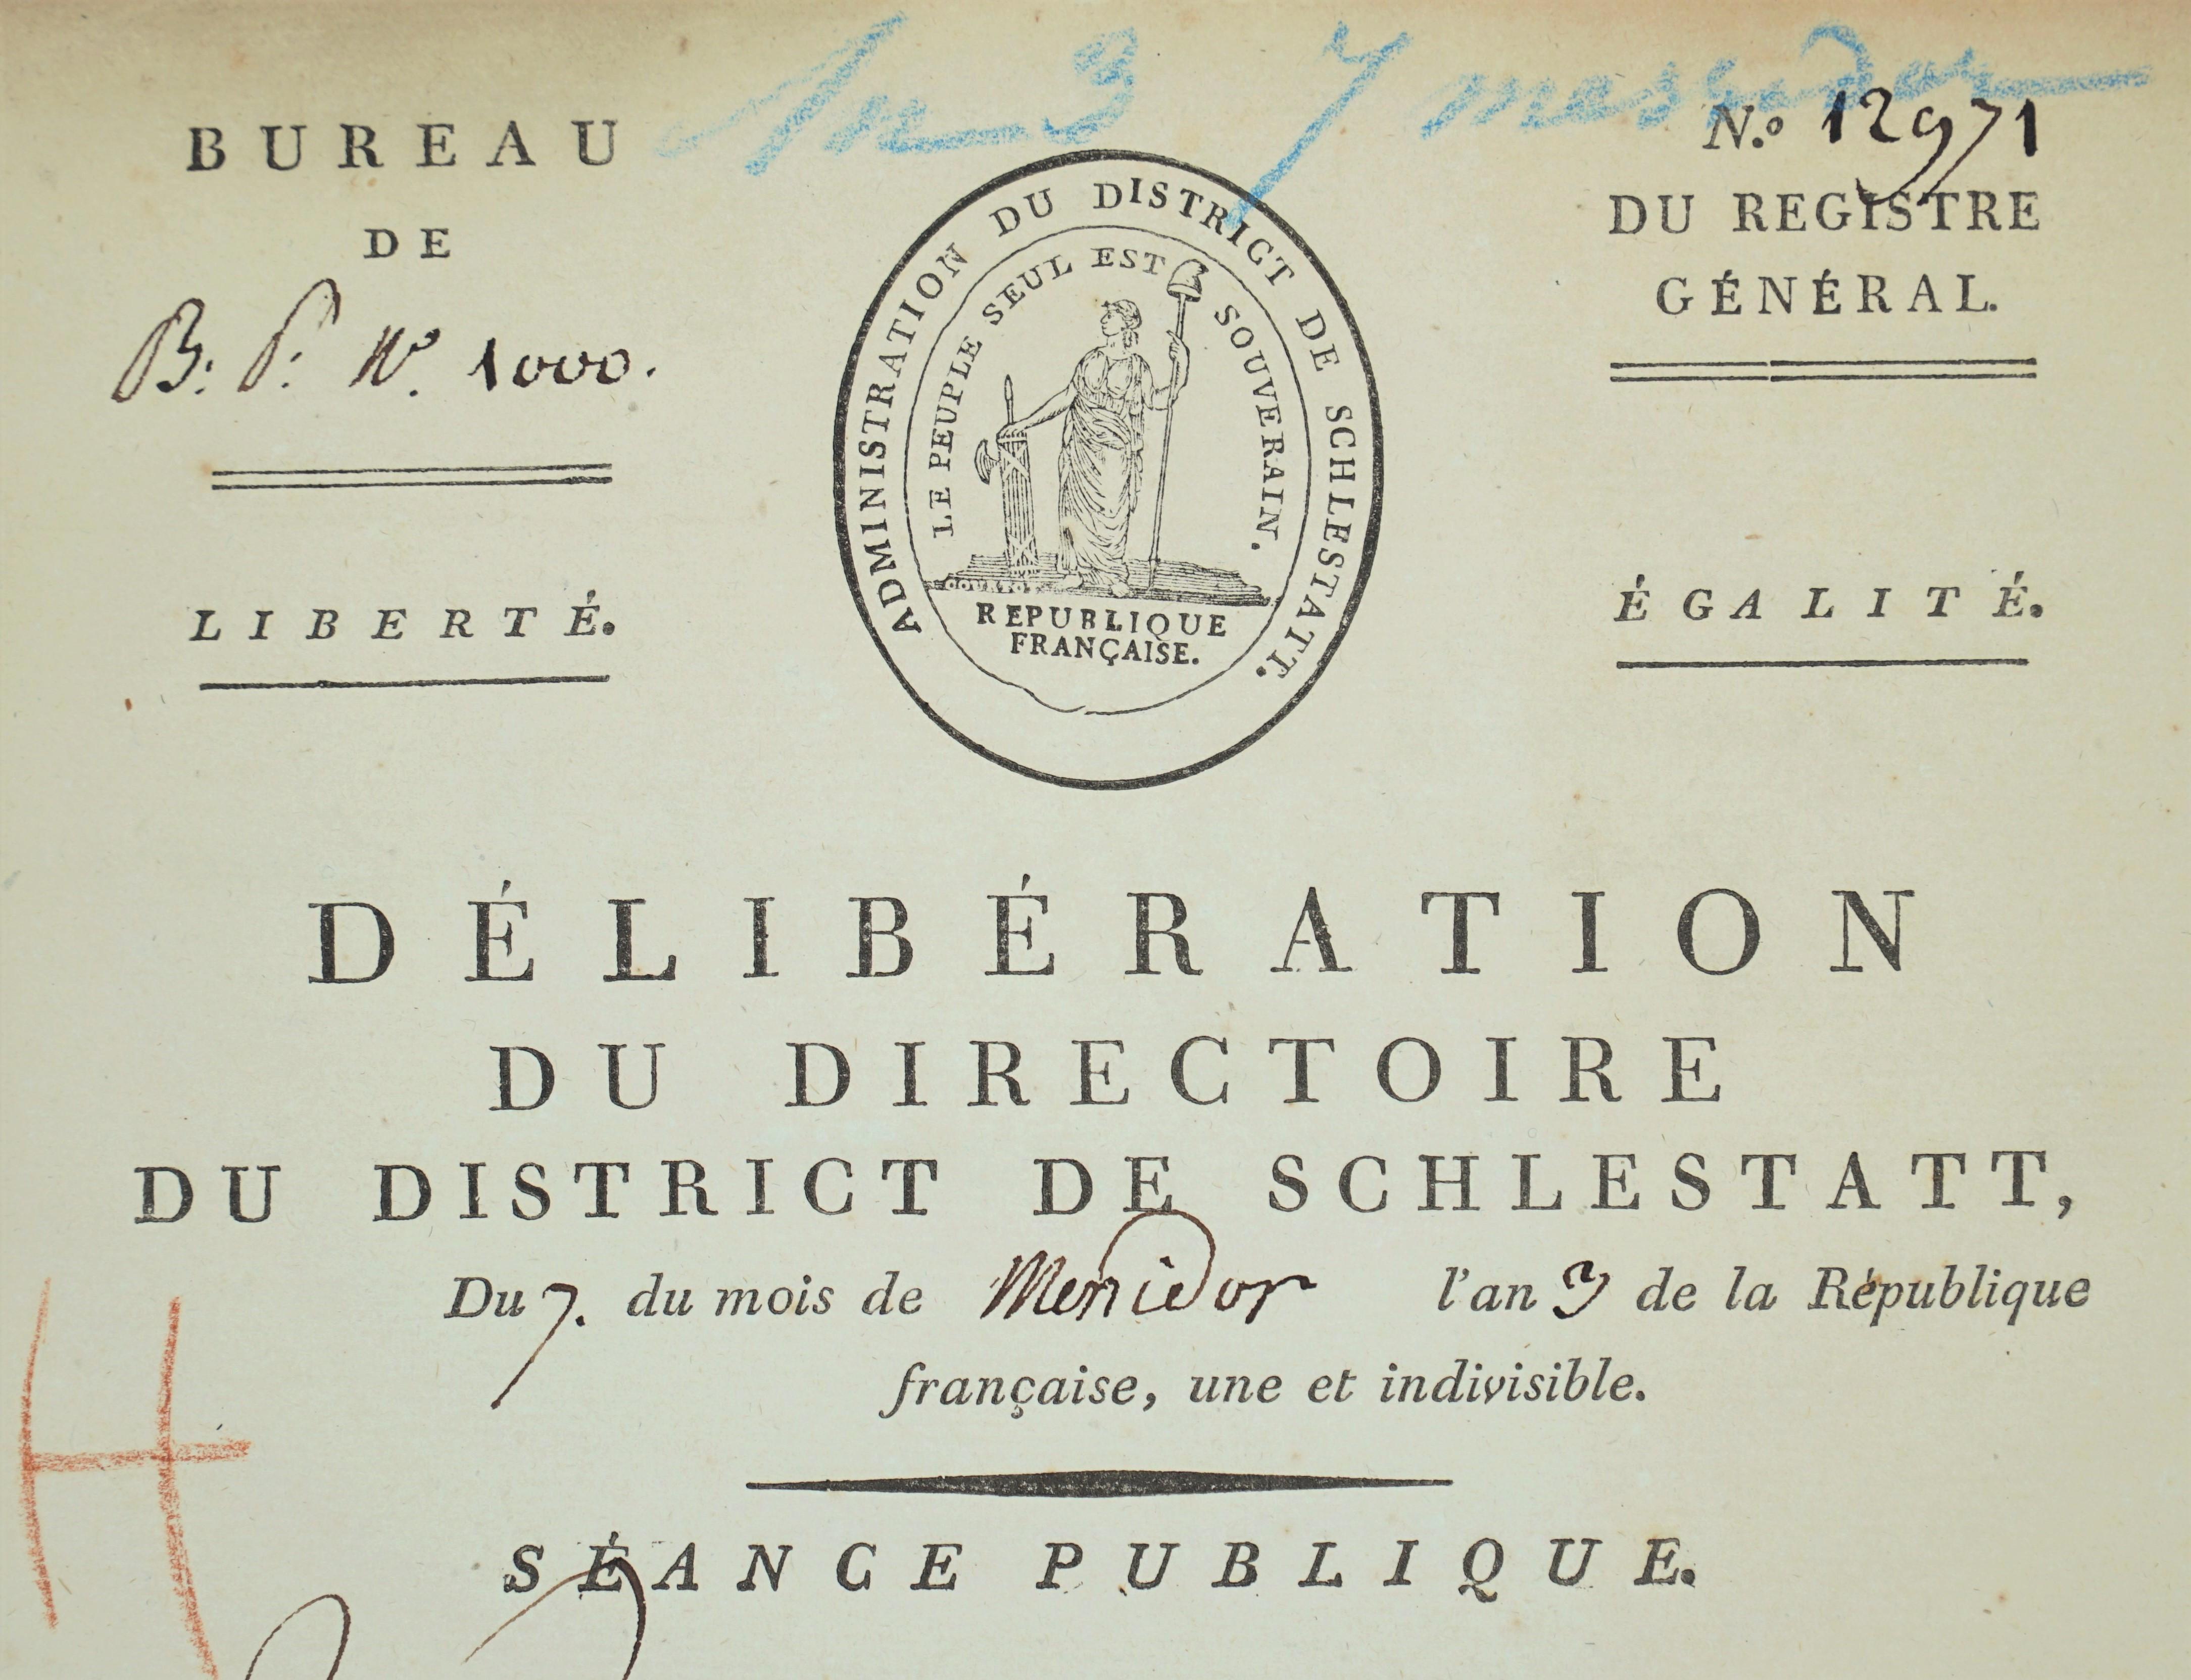 An 3 7 messidor
BUREAU
DE
B. P. N.º 1000.
LIBERTÉ.
ADMINISTRATION DU DISTRICT DE SCHLESTATT.
LE PEUPLE SEUL EST SOUVERAIN.
REPUBLIQUE
FRANÇAISE.
N.º 12971
DU REGISTRE
GÉNÉRAL.
ÉGALITÉ.
DÉLIBÉRATION
DU DIRECTOIRE
DU DISTRICT DE SCHLESTATT,
Du 7. du mois de Messidor l'an 3 de la République
française, une et indivisible.
H
SÉANCE PUBLIQUE.